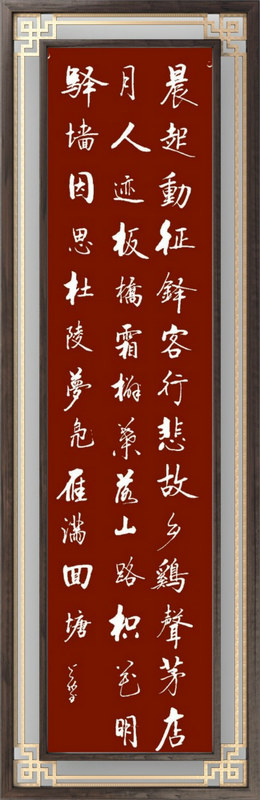 晨起動征铎客行悲故乡鷄聲茅店
月人迹板橋霜槲葉落山路枳花明
驿墙因思杜陵夢凫雁滿囬塘